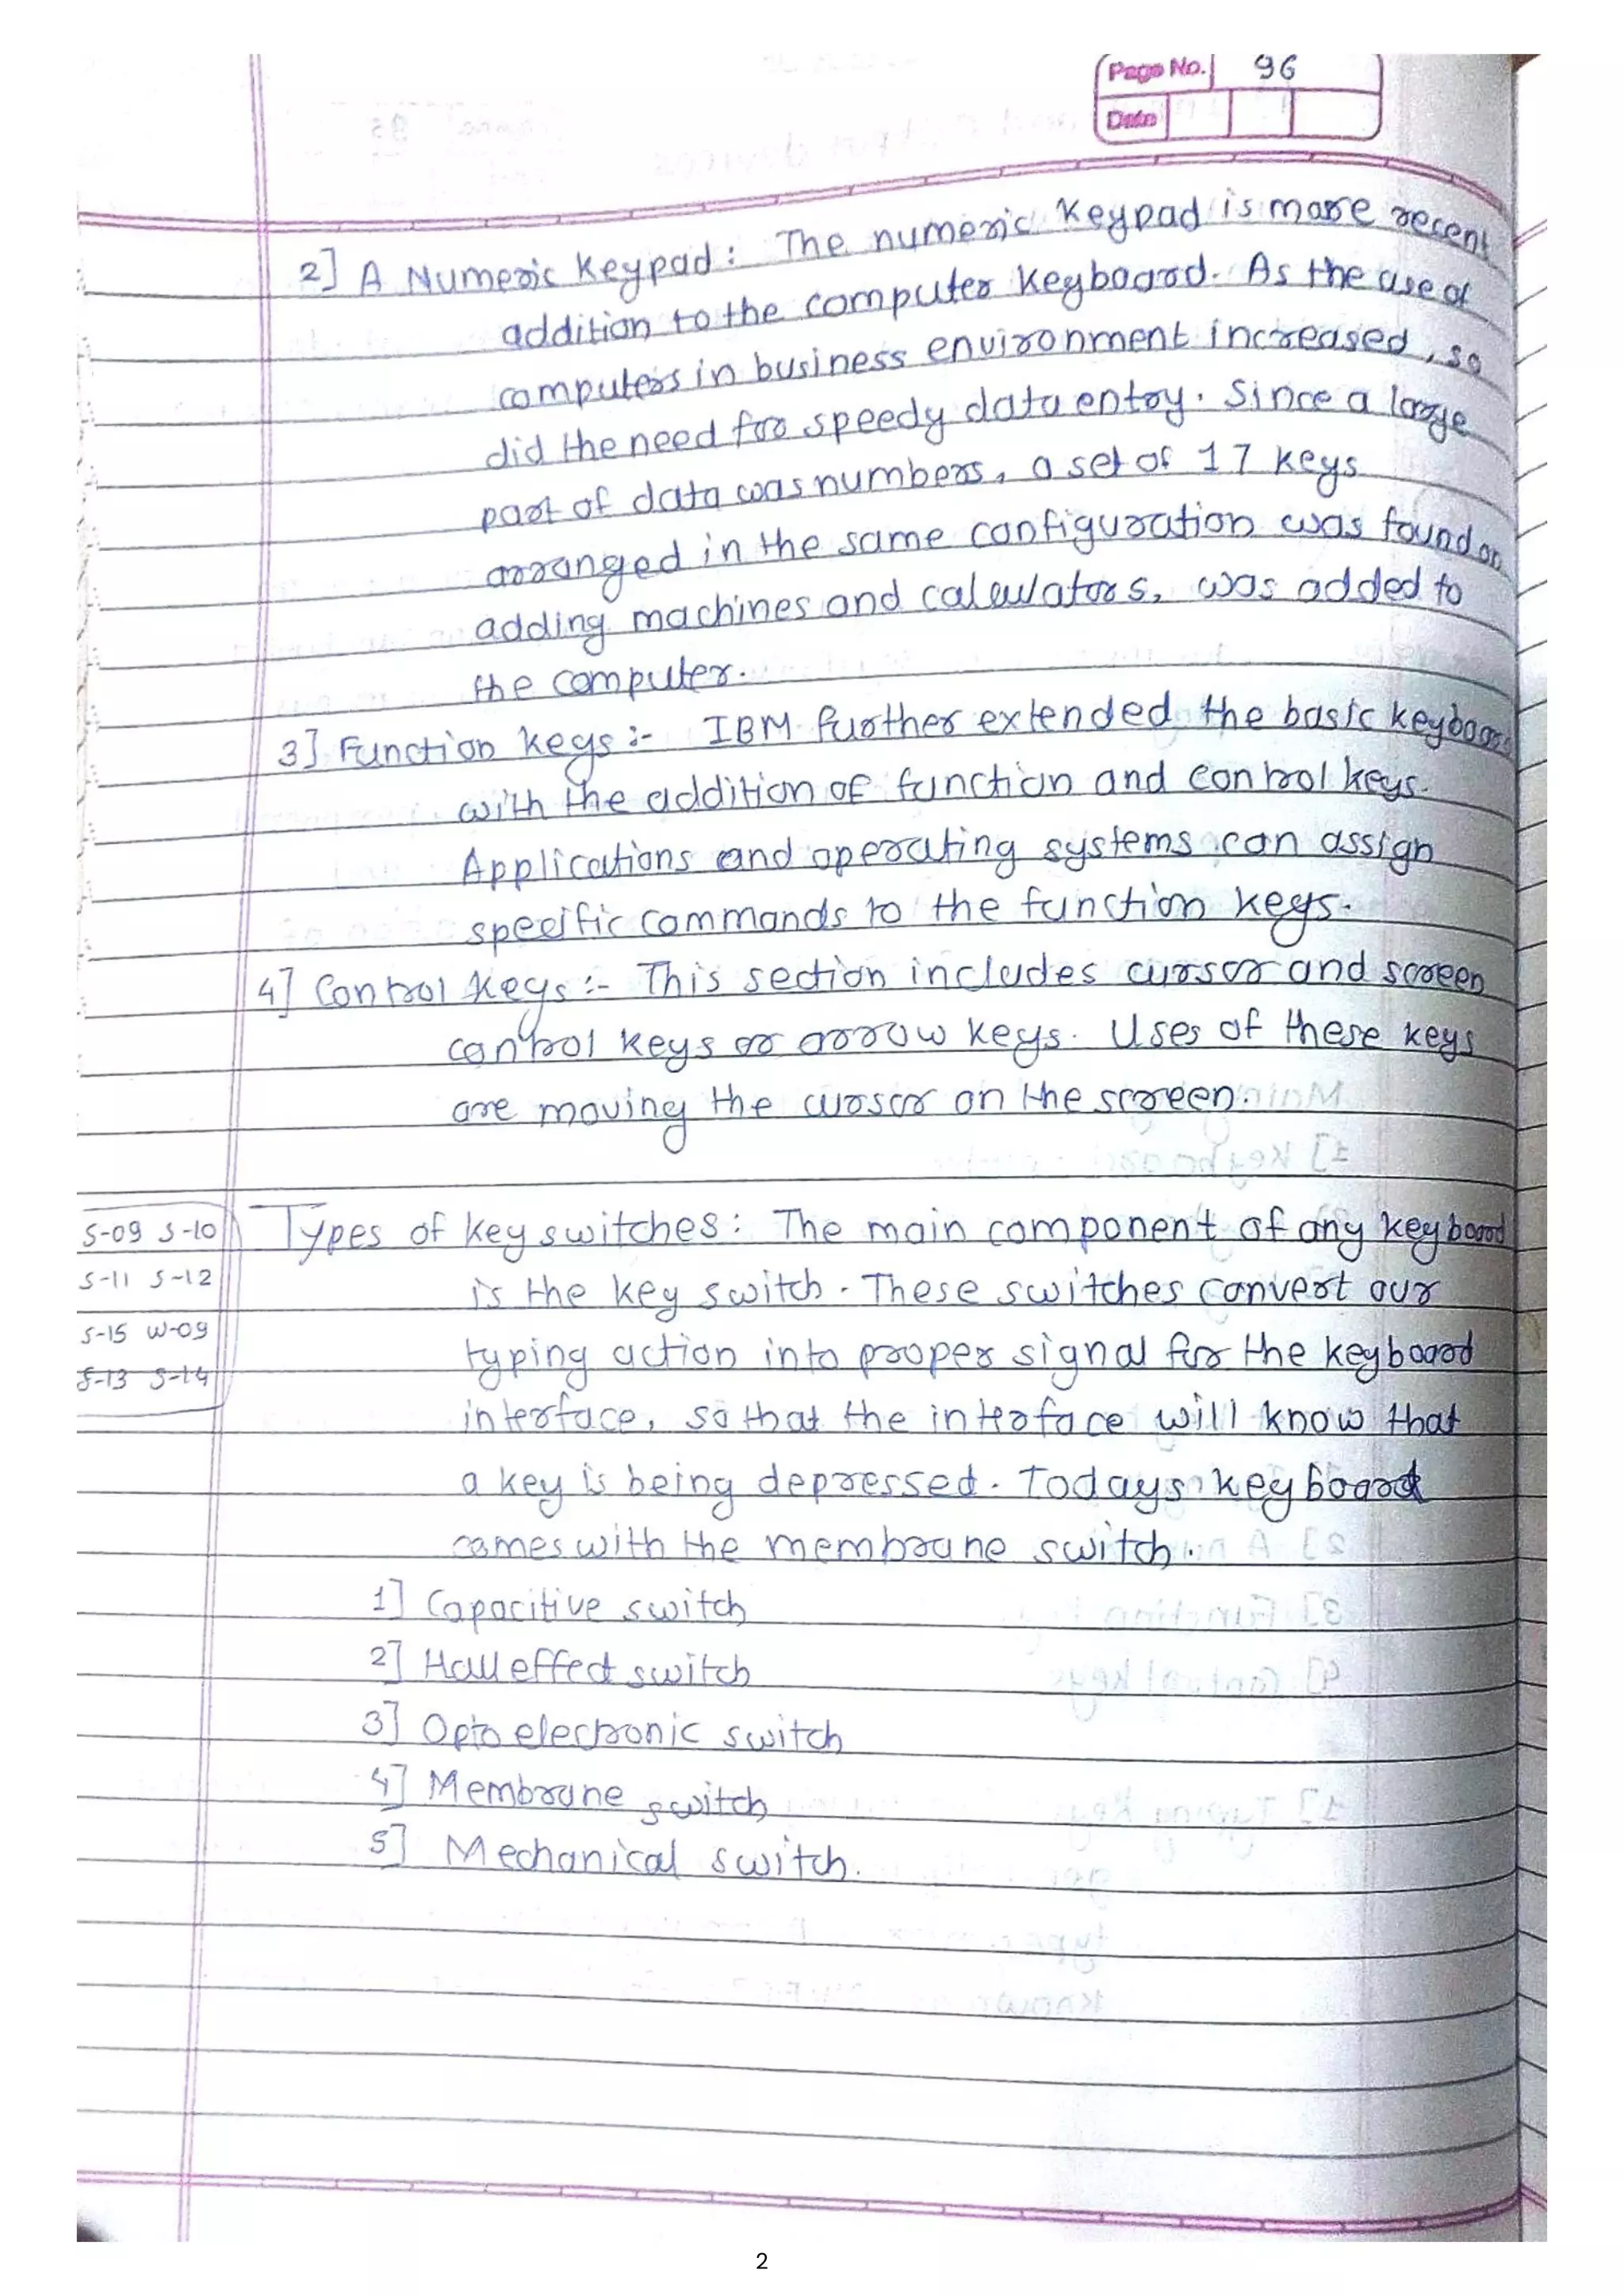 Page No. 96
Date
2] A Numeric Keypad : The numeric Keypad is more recent
addition to the computer Keyboard. As the use of
computers in business environment increased, so
did the need for speedy data entry. Since a large
part of data was numbers, a set of 17 keys
arranged in the same configuration was found on
adding machines and calculators, was added to
the computer.
3] Function keys :- IBM further extended the basic keyboard
with the addition of function and control keys.
Applications and operating systems can assign
specific commands to the function keys.
4] Control Keys :- This section includes cursor and screen
control keys or arrow keys. Uses of these keys
are moving the cursor on the screen.
S-09 S-10
Types of key switches : The main component of any keyboard
S-11 S-12
is the key switch. These switches convert our
S-15 W-09
typing action into proper signal for the keyboard
S-13 S-14
interface, so that the interface will know that
a key is being depressed. Todays keyboard
comes with the membrane switch.
1] Capacitive switch
2] Hall effect switch
3] Opto electronic switch
4] Membrane switch
5] Mechanical switch.
2